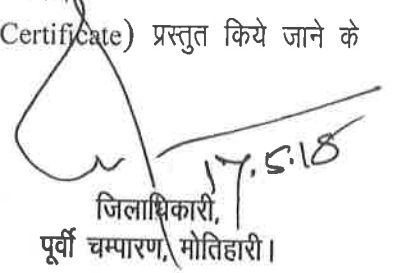 Certificate) प्रस्तुत किये जाने के
17.5.18
जिलाधिकारी,
पूर्वी चम्पारण, मोतिहारी।